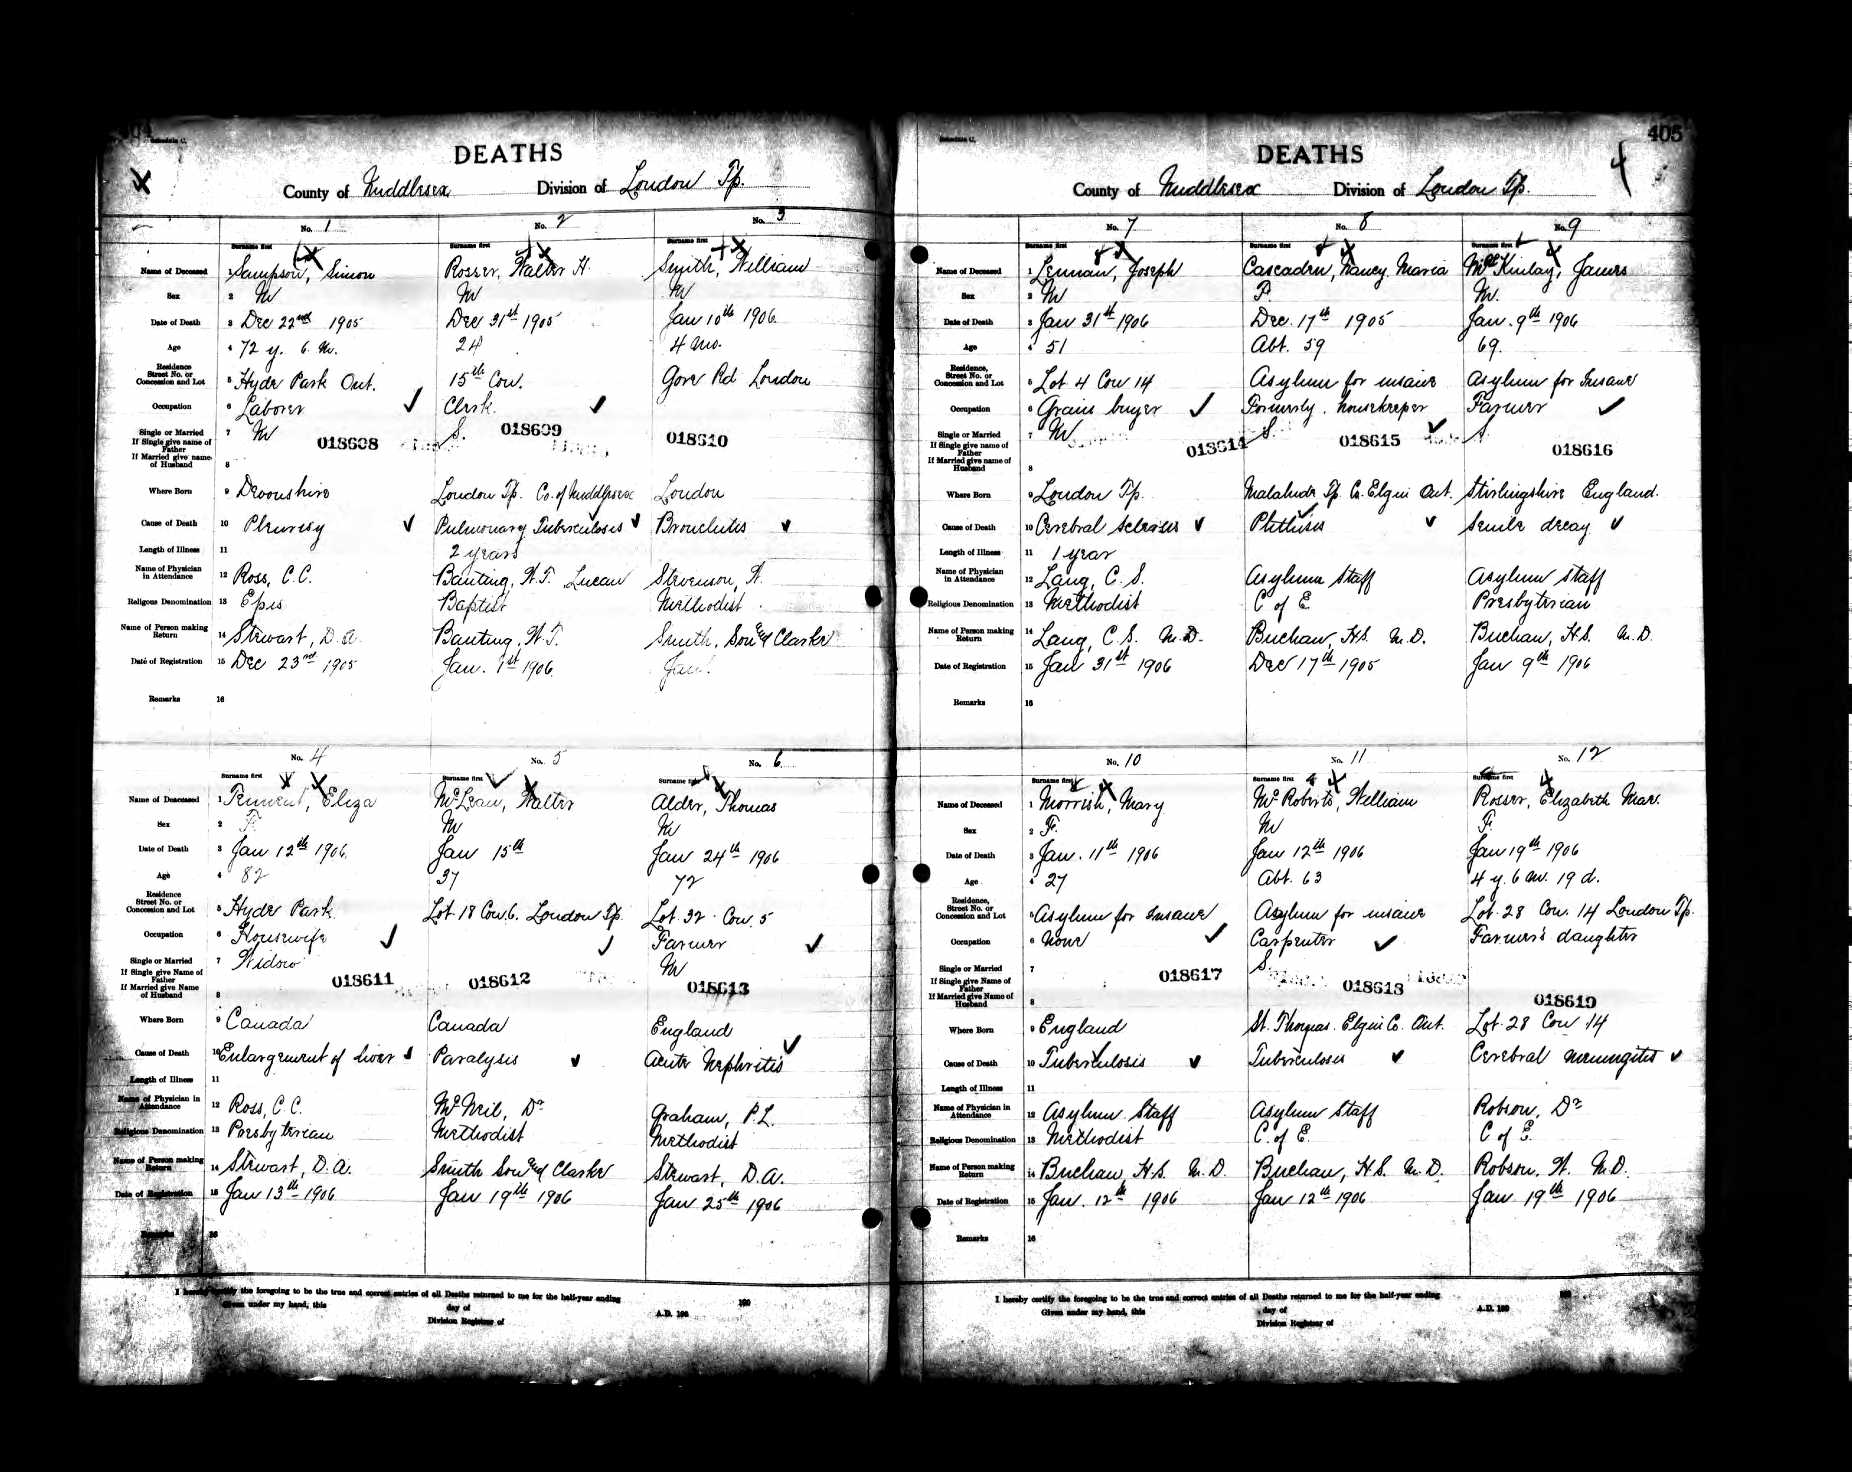 404
Schedule C.
DEATHS
County of Middlesex Division of London Tp.
No. 1 No. 2 No. 3
Surname first Surname first Surname first
Name of Deceased 1 Sampson, Simon Rosser, Walter H. Smith, William
Sex 2 M M M
Date of Death 3 Dec 22nd 1905 Dec 31st 1905 Jan 10th 1906
Age 4 72 y. 6 m. 24 4 mo.
Residence Street No. or Concession and Lot 5 Hyde Park Ont. 15th Con. Gore Rd London
Occupation 6 Laborer Clerk
Single or Married 7 M S.
If Single give name of Father
If Married give name of Husband 8
018608 018609 018610
Where Born 9 Devonshire London Tp. Co. of Middlesex London
Cause of Death 10 Pleurisy Pulmonary Tuberculosis Bronchitis
Length of Illness 11 2 years
Name of Physician in Attendance 12 Ross, C.C. Banting, W.T. Lucan Stevenson, W.
Religious Denomination 13 Epis Baptist Methodist
Name of Person making Return 14 Stewart, D.A. Banting, W.T. Smith, Son & Clarke
Date of Registration 15 Dec 23rd 1905 Jan. 1st 1906 Jan.
Remarks 16
No. 4 No. 5 No. 6
Surname first Surname first Surname first
Name of Deceased 1 Tennent, Eliza McLean, Walter Alder, Thomas
Sex 2 F. M M
Date of Death 3 Jan 12th 1906 Jan 15th Jan 24th 1906
Age 4 82 37 72
Residence Street No. or Concession and Lot 5 Hyde Park Lot 18 Con 6. London Tp. Lot 32 Con. 5
Occupation 6 Housewife Farmer
Single or Married 7 Widow M
If Single give Name of Father
If Married give Name of Husband 8
018611 018612 018613
Where Born 9 Canada Canada England
Cause of Death 10 Enlargement of liver Paralysis Acute Nephritis
Length of Illness 11
Name of Physician in Attendance 12 Ross, C.C. McNeil, Dr Graham, P.L.
Religious Denomination 13 Presbyterian Methodist Methodist
Name of Person making Return 14 Stewart, D.A. Smith Son & Clarke Stewart, D.A.
Date of Registration 15 Jan 13th 1906 Jan 19th 1906 Jan 25th 1906
Remarks 16
I hereby certify the foregoing to be the true and correct entries of all Deaths returned to me for the half-year ending 190
Given under my hand, this day of A.D. 190
Division Registrar of
405
Schedule C.
4
DEATHS
County of Middlesex Division of London Tp.
No. 7 No. 8 No. 9
Surname first Surname first Surname first
Name of Deceased 1 Lennan, Joseph Cascaden, Nancy Maria McKinlay, James
Sex 2 M F. M.
Date of Death 3 Jan 31st 1906 Dec. 17th 1905 Jan. 9th 1906
Age 4 51 Abt. 59 69.
Residence, Street No. or Concession and Lot 5 Lot 4 Con 14 Asylum for insane Asylum for Insane
Occupation 6 Grain buyer Formerly housekeeper Farmer
Single or Married 7 M S. S.
If Single give name of Father
If Married give name of Husband 8
018614 018615 018616
Where Born 9 London Tp. Malahide Tp. Co. Elgin Ont. Stirlingshire England.
Cause of Death 10 Cerebral Sclerosis Phthisis Senile decay
Length of Illness 11 1 year
Name of Physician in Attendance 12 Lang, C.S. Asylum Staff Asylum Staff
Religious Denomination 13 Methodist C of E. Presbyterian
Name of Person making Return 14 Lang, C.S. M.D. Buchan, H.S. M.D. Buchan, H.S. M.D.
Date of Registration 15 Jan 31st 1906 Dec 17th 1905 Jan 9th 1906
Remarks 16
No. 10 No. 11 No. 12
Surname first Surname first Surname first
Name of Deceased 1 Morrish, Mary McRoberts, William Rosser, Elizabeth Mar.
Sex 2 F. M F.
Date of Death 3 Jan. 11th 1906 Jan 12th 1906 Jan 19th 1906
Age 4 27 Abt. 63 4 y. 6 m. 19 d.
Residence, Street No. or Concession and Lot 5 Asylum for Insane Asylum for insane Lot 28 Con. 14 London Tp.
Occupation 6 None Carpenter Farmer's daughter
Single or Married 7 S.
If Single give Name of Father
If Married give Name of Husband 8
018617 018618 018619
Where Born 9 England St. Thomas. Elgin Co. Ont. Lot 28 Con 14
Cause of Death 10 Tuberculosis Tuberculosis Cerebral meningitis
Length of Illness 11
Name of Physician in Attendance 12 Asylum Staff Asylum Staff Robson, Dr
Religious Denomination 13 Methodist C. of E. C of E.
Name of Person making Return 14 Buchan, H.S. M.D. Buchan, H.S. M.D. Robson, W. M.D.
Date of Registration 15 Jan. 12th 1906 Jan 12th 1906 Jan 19th 1906
Remarks 16
I hereby certify the foregoing to be the true and correct entries of all Deaths returned to me for the half-year ending 190
Given under my hand, this day of A.D. 190
Division Registrar of